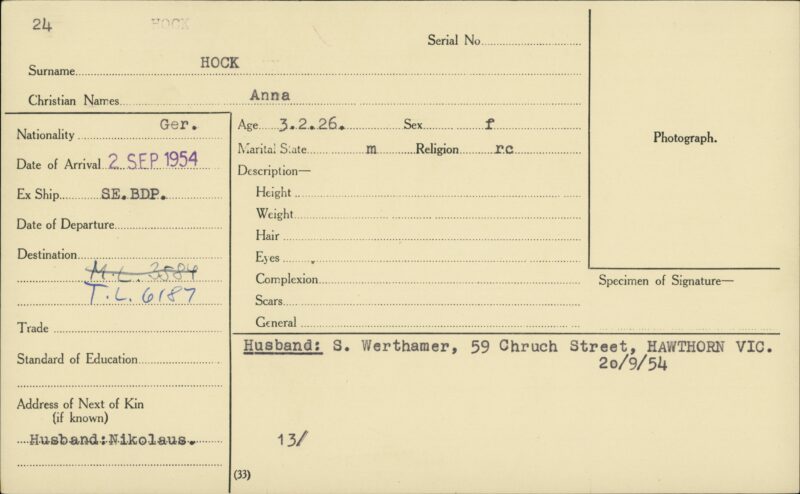 24 HOCK
Serial No.
Surname HOCK
Christian Names Anna
Nationality Ger.
Date of Arrival 2 SEP 1954
Ex Ship SE.BDP.
Date of Departure
Destination
M.L. 3584
T.L. 6187
Trade
Standard of Education
Address of Next of Kin
(if known)
Husband:Nikolaus.
Age 3.2.26. Sex f
Marital State m Religion rc
Description—
Height
Weight
Hair
Eyes
Complexion
Scars
General
Photograph.
Specimen of Signature—
Husband: S. Werthamer, 59 Chruch Street, HAWTHORN VIC.
20/9/54
13/
(33)